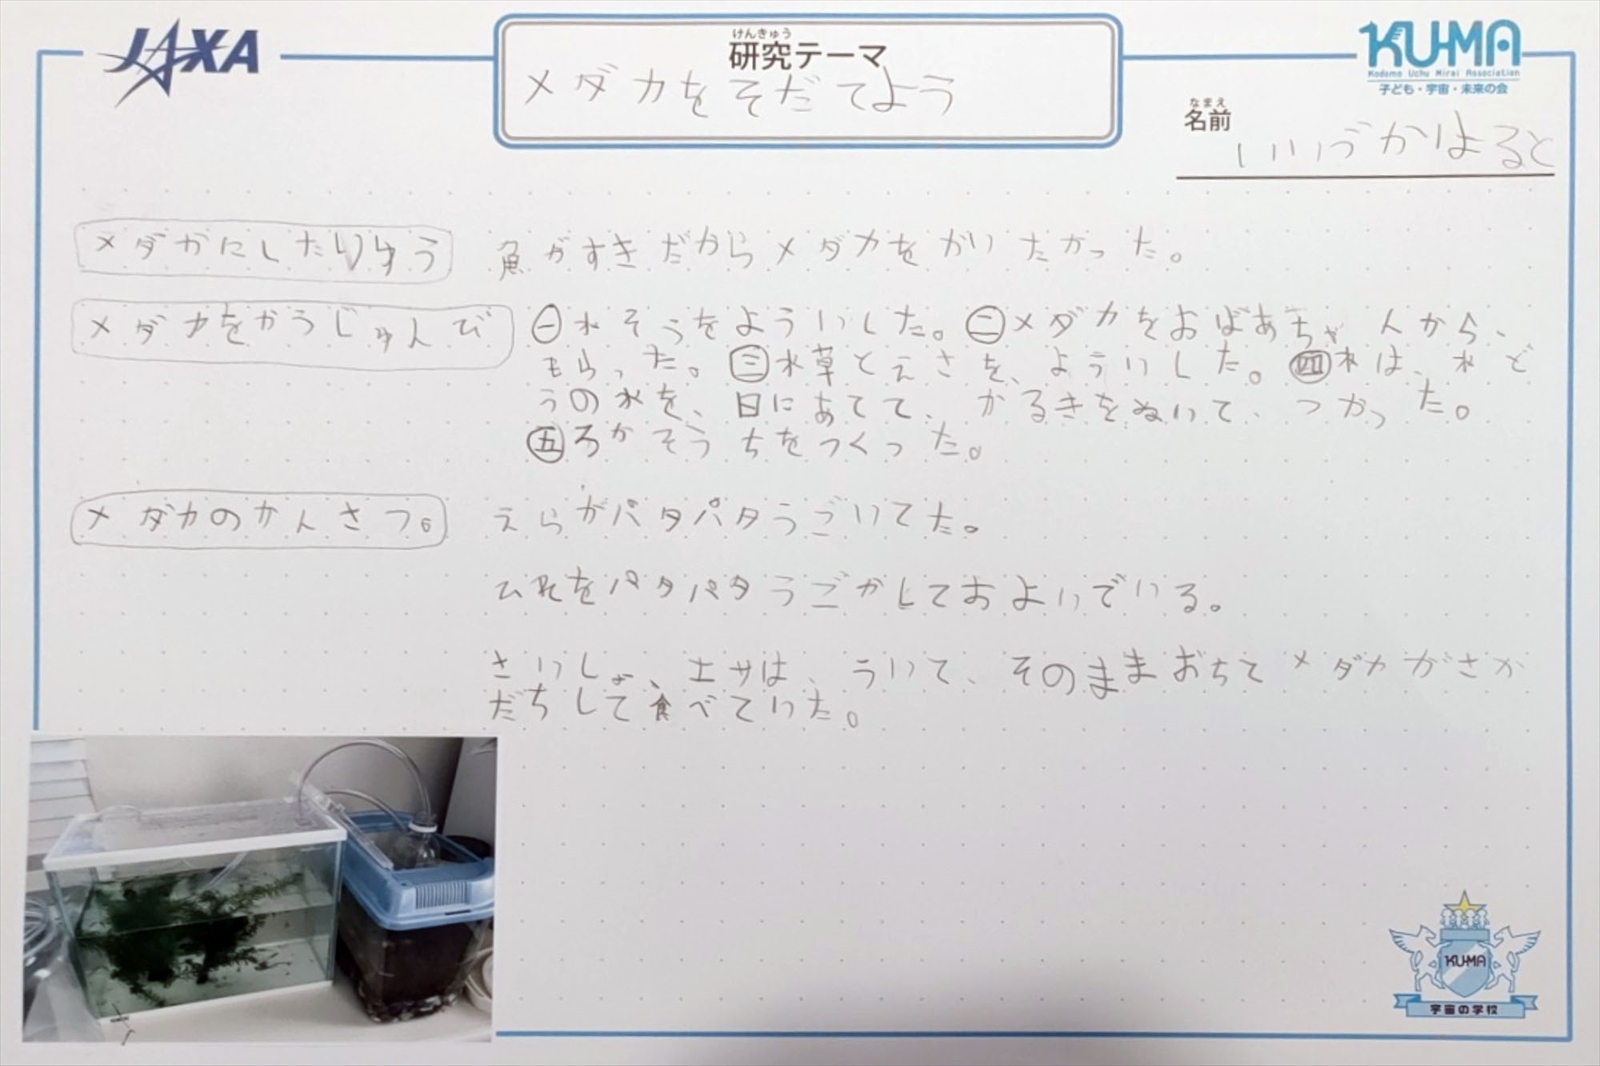 JAXA
けんきゅう
研究テーマ
メダカをそだてよう
KU-MA
Kodomo Uchu Mirai Association
子ども・宇宙・未来の会
なまえ
名前
いいづかはると
メダカにしたりゆう
魚がすきだからメダカをかいたかった。
メダカをかうじゅんび
㊀水そうをよういした。㊁メダカをおばあちゃんから、
もらった。㊂水草とえさを、よういした。㊃水は、水ど
うの水を、日にあてて、かるきをぬいて、つかった。
㊄ろかそうちをつくった。
メダカのかんさつ。
えらがパタパタうごいてた。
ひれをパタパタうごかしておよいでいる。
さいしょ、エサは、ういて、そのままおちてメダカがさか
だちして食べていた。
KU-MA
宇宙の学校